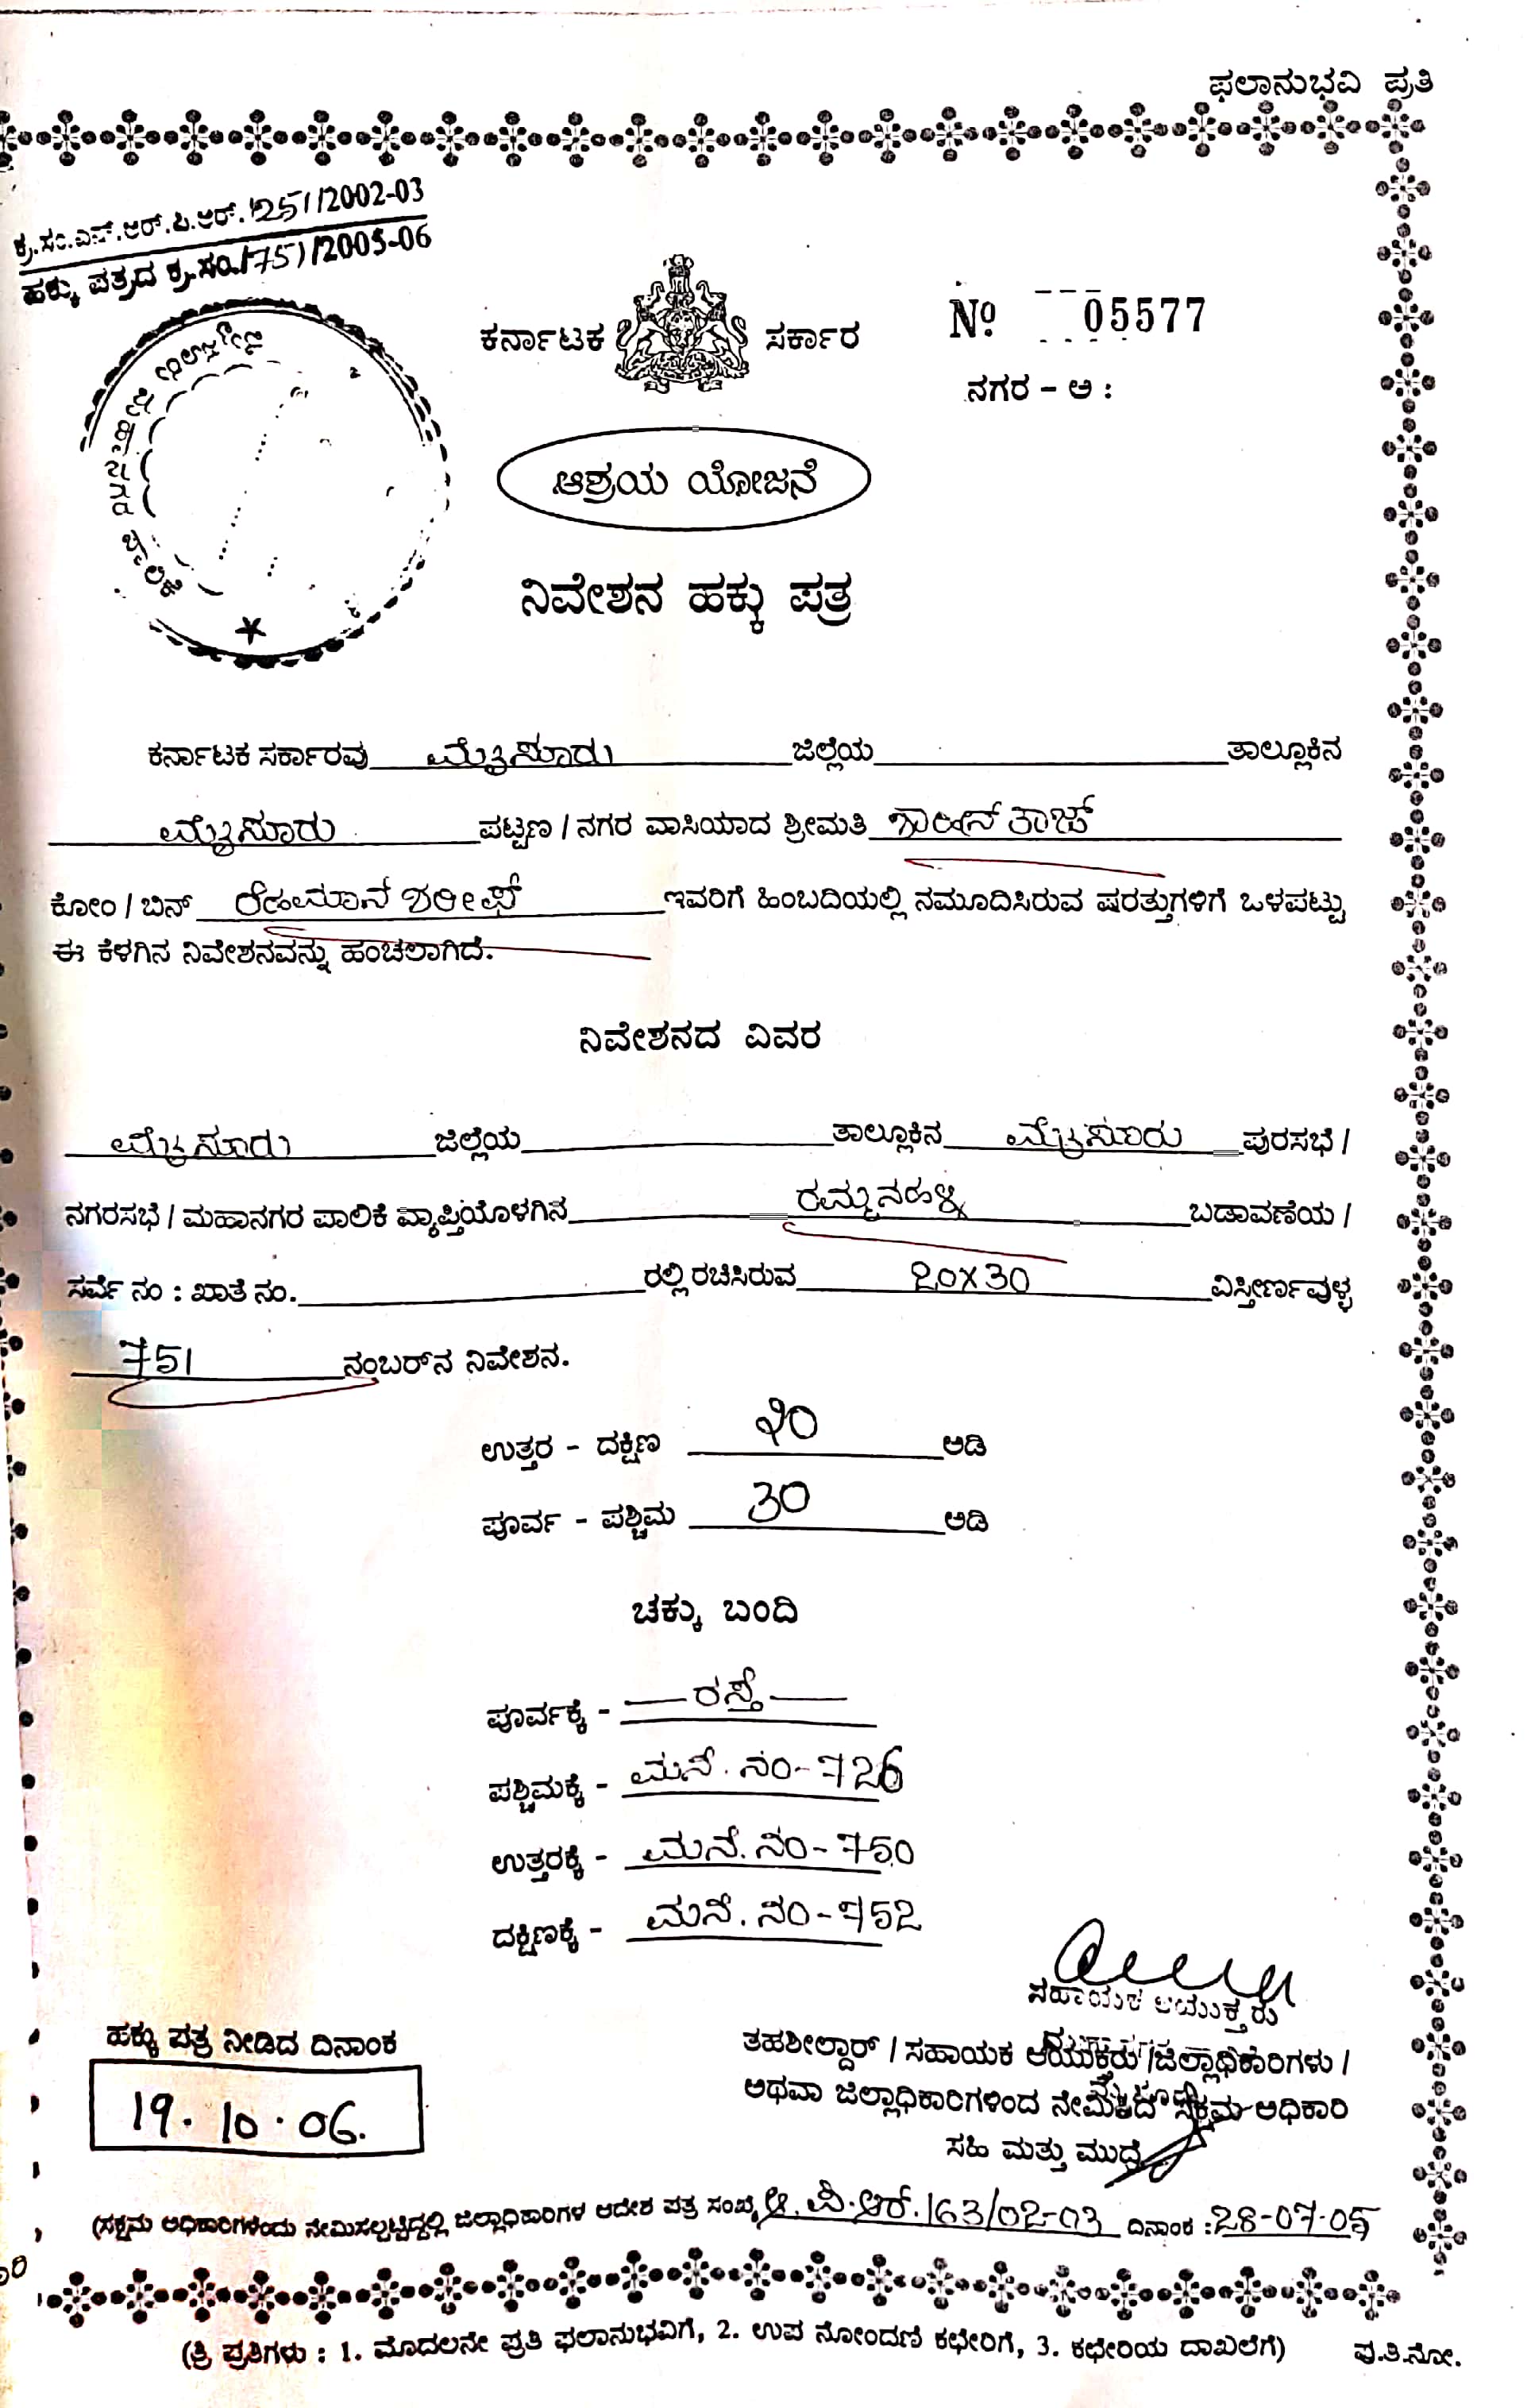 ಫಲಾನುಭವಿ ಪ್ರತಿ
ಕ್ರ.ಸಂ.ಎನ್.ಆರ್.ಪಿ.ಆರ್. 251/2002-03
ಹಕ್ಕು ಪತ್ರದ ಕ್ರ.ಸಂ./751/2005-06
ಕರ್ನಾಟಕ ಸರ್ಕಾರ
Nº 05577
ನಗರ - ಅ :
ಮೈಸೂರು ಮಹಾನಗರ ಪಾಲಿಕೆ
ಆಶ್ರಯ ಯೋಜನೆ
ನಿವೇಶನ ಹಕ್ಕು ಪತ್ರ
ಕರ್ನಾಟಕ ಸರ್ಕಾರವು ಮೈಸೂರು ಜಿಲ್ಲೆಯ ತಾಲ್ಲೂಕಿನ
ಮೈಸೂರು ಪಟ್ಟಣ / ನಗರ ವಾಸಿಯಾದ ಶ್ರೀಮತಿ ಶಾಹೀನ್ ತಾಜ್
ಕೋಂ / ಬಿನ್ ರೆಹಮಾನ್ ಶರೀಫ್ ಇವರಿಗೆ ಹಿಂಬದಿಯಲ್ಲಿ ನಮೂದಿಸಿರುವ ಷರತ್ತುಗಳಿಗೆ ಒಳಪಟ್ಟು
ಈ ಕೆಳಗಿನ ನಿವೇಶನವನ್ನು ಹಂಚಲಾಗಿದೆ.
ನಿವೇಶನದ ವಿವರ
ಮೈಸೂರು ಜಿಲ್ಲೆಯ ತಾಲ್ಲೂಕಿನ ಮೈಸೂರು ಪುರಸಭೆ /
ನಗರಸಭೆ / ಮಹಾನಗರ ಪಾಲಿಕೆ ವ್ಯಾಪ್ತಿಯೊಳಗಿನ ರಮ್ಮನಹಳ್ಳಿ ಬಡಾವಣೆಯ /
ಸರ್ವೆ ನಂ : ಖಾತೆ ನಂ. ರಲ್ಲಿ ರಚಿಸಿರುವ 20X30 ವಿಸ್ತೀರ್ಣವುಳ್ಳ
751 ನಂಬರ್‌ನ ನಿವೇಶನ.
ಉತ್ತರ - ದಕ್ಷಿಣ 20 ಅಡಿ
ಪೂರ್ವ - ಪಶ್ಚಿಮ 30 ಅಡಿ
ಚಕ್ಕು ಬಂದಿ
ಪೂರ್ವಕ್ಕೆ - ರಸ್ತೆ
ಪಶ್ಚಿಮಕ್ಕೆ - ಮನೆ. ನಂ-726
ಉತ್ತರಕ್ಕೆ - ಮನೆ. ನಂ-750
ದಕ್ಷಿಣಕ್ಕೆ - ಮನೆ. ನಂ-752
ಸಹಾಯಕ ಆಯುಕ್ತರು
ಹಕ್ಕು ಪತ್ರ ನೀಡಿದ ದಿನಾಂಕ
19.10.06.
ತಹಶೀಲ್ದಾರ್ / ಸಹಾಯಕ ಆಯುಕ್ತರು / ಜಿಲ್ಲಾಧಿಕಾರಿಗಳು /
ಅಥವಾ ಜಿಲ್ಲಾಧಿಕಾರಿಗಳಿಂದ ನೇಮಿಕಿದ ಸಕ್ಷಮ ಅಧಿಕಾರಿ
ಸಹಿ ಮತ್ತು ಮುದ್ರೆ
(ಸಕ್ಷಮ ಅಧಿಕಾರಿಗಳೆಂದು ನೇಮಿಸಲ್ಪಟ್ಟಿದ್ದಲ್ಲಿ ಜಿಲ್ಲಾಧಿಕಾರಿಗಳ ಆದೇಶ ಪತ್ರ ಸಂಖ್ಯೆ ಆ.ವಿ.ಆರ್.163/02-03 ದಿನಾಂಕ :28-07-05
(ತ್ರಿ ಪ್ರತಿಗಳು : 1. ಮೊದಲನೇ ಪ್ರತಿ ಫಲಾನುಭವಿಗೆ, 2. ಉಪ ನೋಂದಣಿ ಕಛೇರಿಗೆ, 3. ಕಛೇರಿಯ ದಾಖಲೆಗೆ) ಪು.ತಿ.ನೋ.